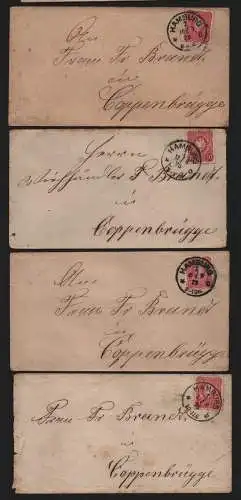 An
Frau Fr Brandt
in
Coppenbrügge
HAMBURG
Herrn
Fr Brandt
in
Coppenbrügge
HAMBURG
An
Frau Fr Brandt
in
Coppenbrügge
HAMBURG
Frau Fr Brandt
in
Coppenbrügge
HAMBURG